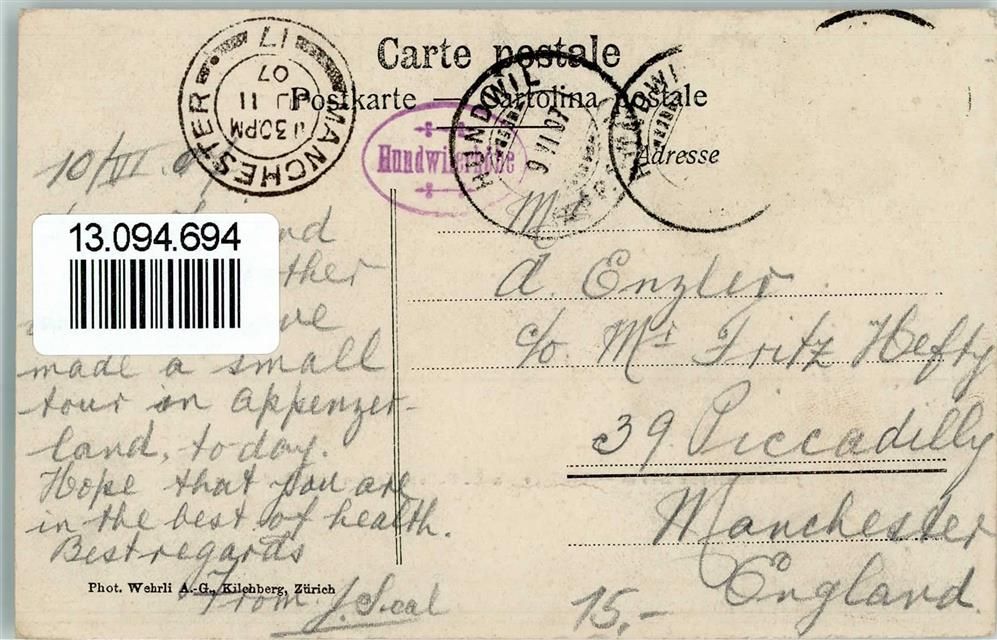 Carte postale
Postkarte — Cartolina postale
Adresse
MANCHESTER
11 30PM
11
07
17
Hundwilerhöhe
HUNDWIL
9 VI 07
HUNDWIL
10/VI 07
13.094.694
nd
ther
ve
made a small
tour in Appenzer-
land, today.
Hope that you are
in the best of health.
Best regards
From J. Seal
Phot. Wehrli A.-G., Kilchberg, Zürich
M
A. Enzler
c/o. Mr Fritz Hefty
39 Piccadilly
Manchester
England.
15,-